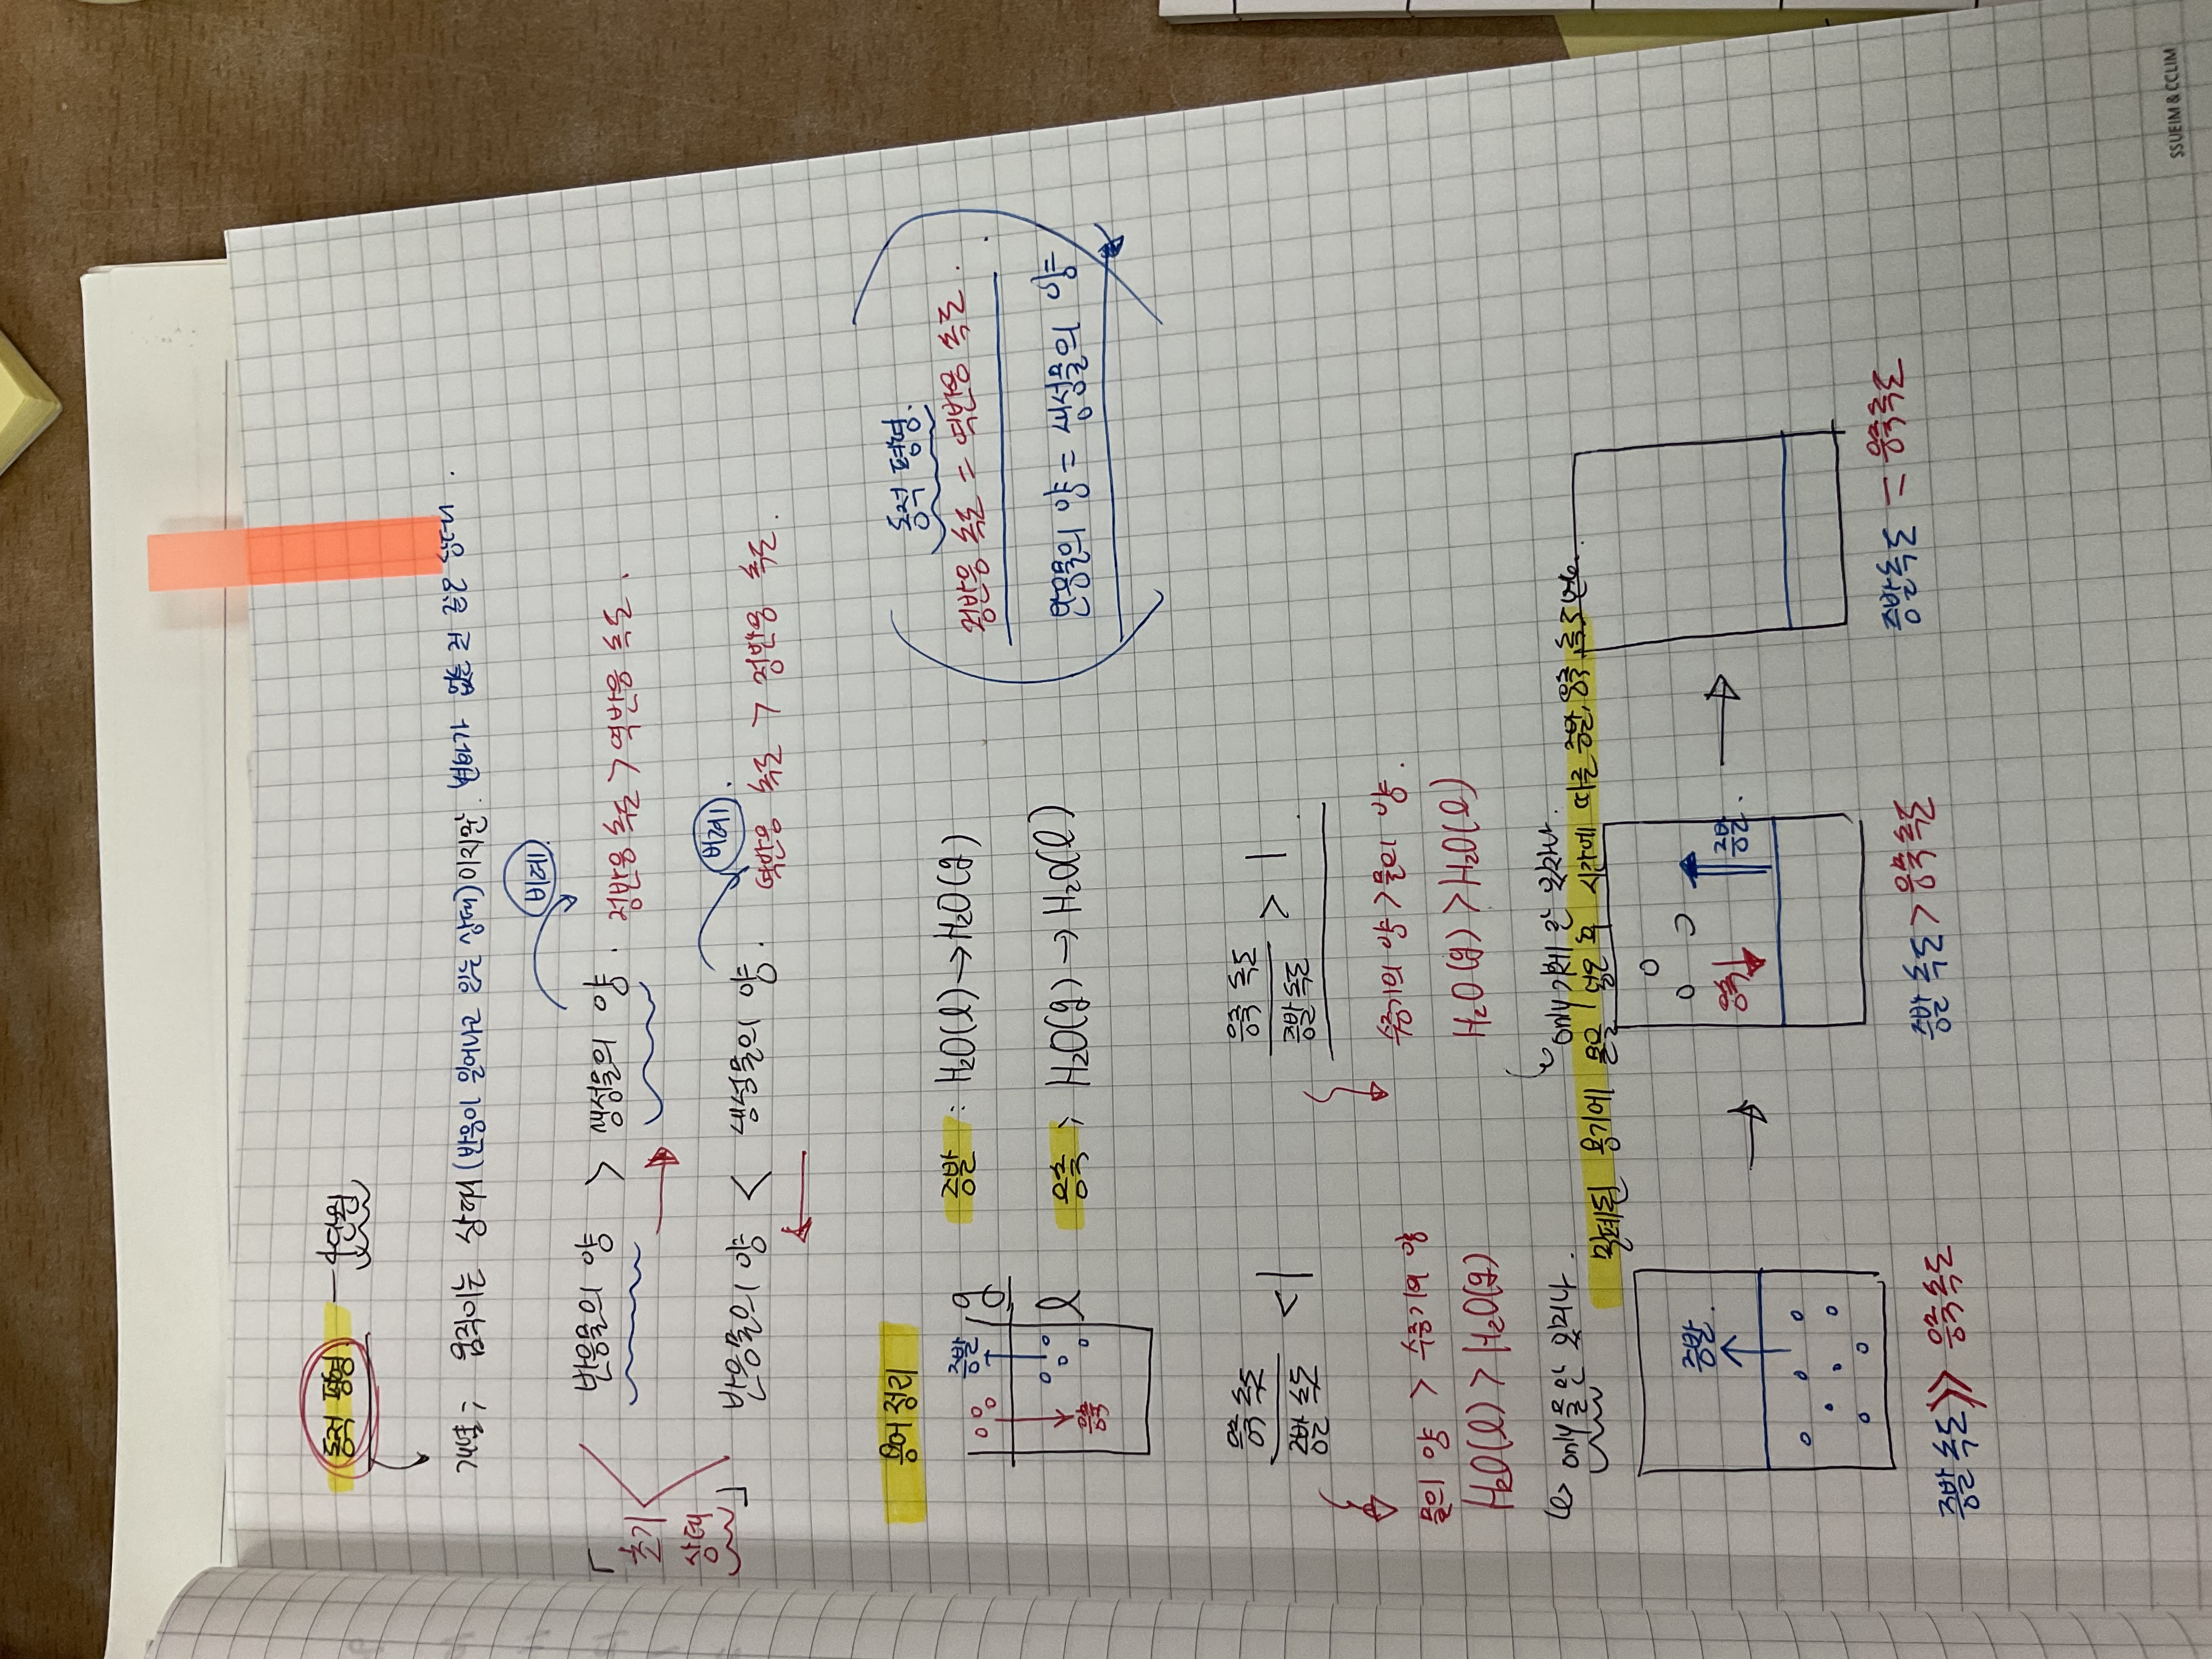 동적 평형 — 수면원
개념; 움직이는 상태(반응이 일어나고 있는 상태)이지만 변화가 없는 것 같은 상태.
「초기 상태」
반응물의 양 > 생성물의 양. 정반응 속도 > 역반응 속도.
비례
반응물의 양 < 생성물의 양. 역반응 속도 > 정반응 속도.
비례.
동적 평형.
정반응 속도 = 역반응 속도.
반응물의 양 = 생성물의 양
용어 정리
증발
응축
g
l
증발 : H₂O(l) → H₂O(g)
응축 ; H₂O(g) → H₂O(l)
응축 속도
증발 속도
< 1
응축 속도
증발 속도
> 1
물의 양 > 수증기의 양
H₂O(l) > H₂O(g)
수증기의 양 > 물의 양.
H₂O(g) > H₂O(l)
only 물만 있거나.
only 기체만 있거나.
밀폐된 용기에 물을 넣은 뒤 시간에 따른 증발, 응축 속도 변화.
증발.
응축
증발.
증발 속도 >> 응축 속도
증발 속도 > 응축 속도
증발 속도 = 응축 속도
SSUEIM & CCLIM